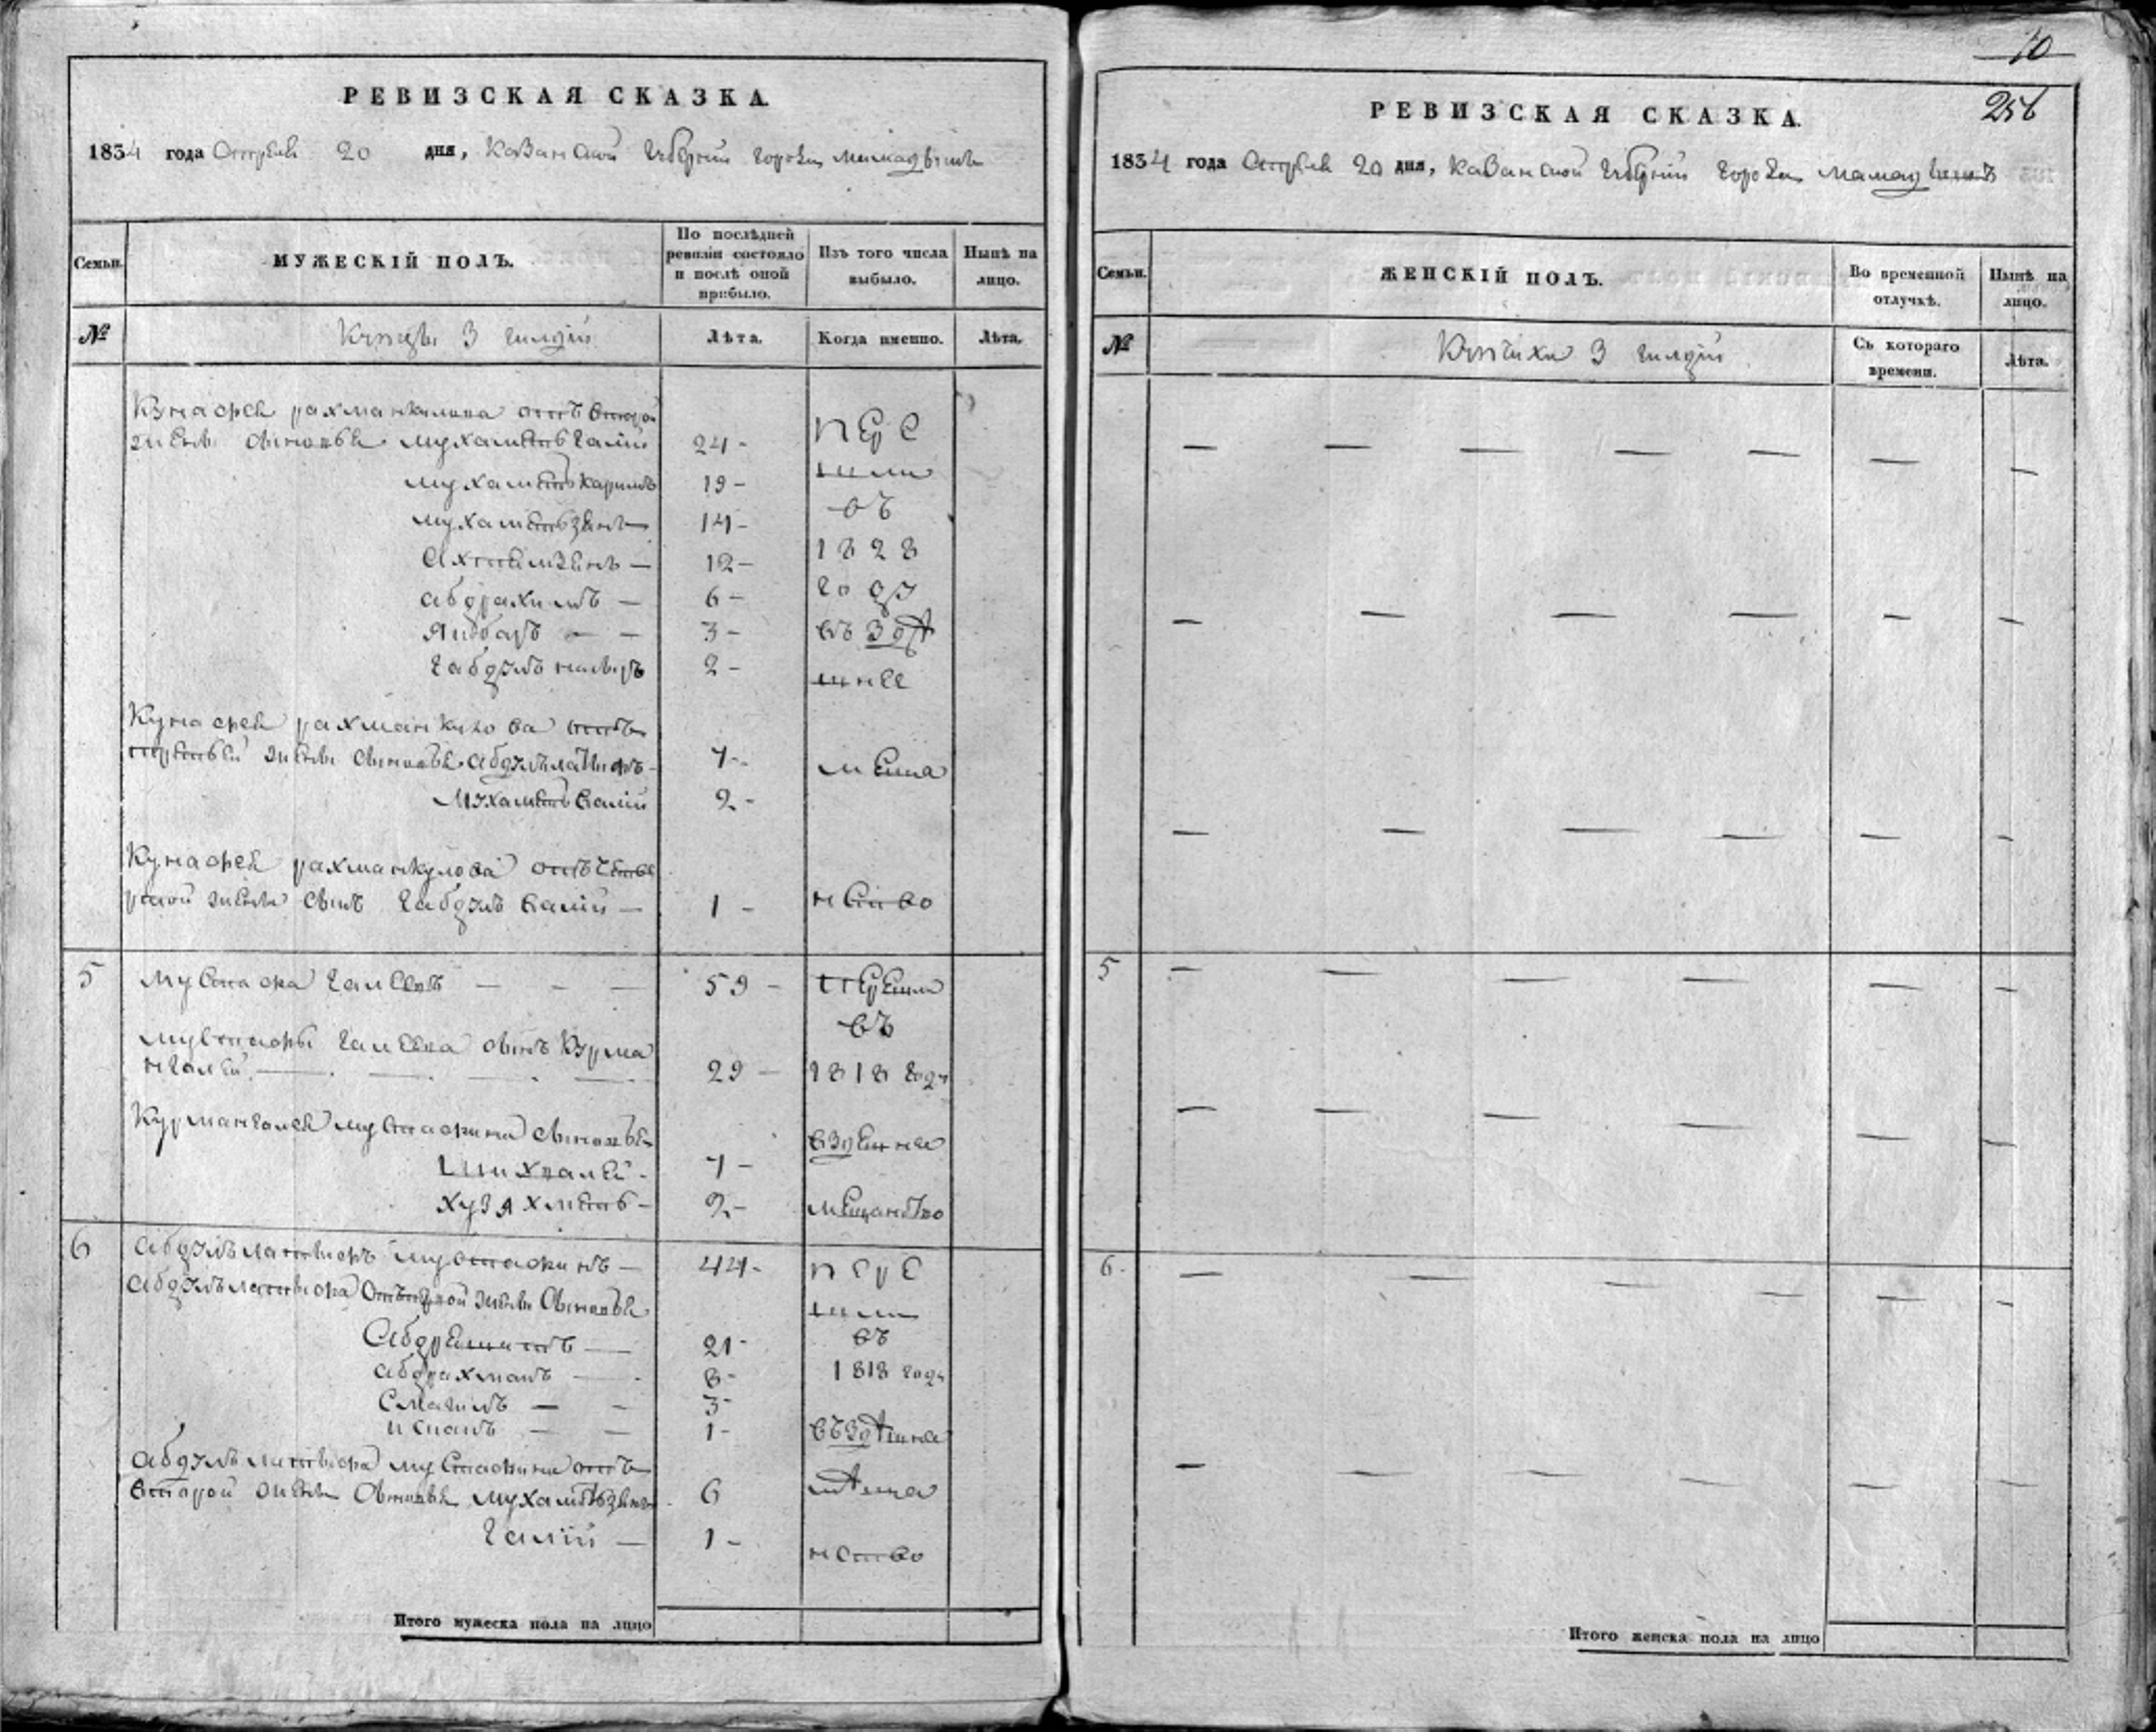 РЕВИЗСКАЯ СКАЗКА.
1834 года Апреля 20 дня, Казанской Губернии города Мамадыша
Семьи.
МУЖЕСКІЙ ПОЛЪ.
По послѣдней ревизіи состояло и послѣ оной прибыло.
Изъ того числа выбыло.
Нынѣ на лицо.
№
Купцы 3 гилдіи
Лѣта.
Когда именно.
Лѣта.
Кунафея рахманкулова отъ второй
жены сыновья Мухаметьгалій 24 - пере
Мухаметькаримъ 19 - шли
Мухаметьзянъ 14 - въ
Ахтямзянъ — 12 - 1828
абдрахимъ — 6 - году
3 - въ здѣ
2 - шнее
Кунафея рахманкулова отъ
третьей жены сыновья абдулълатифъ - 7 - меща
Мухаметьвалій 2 -
Кунафея рахманкулова отъ четве
ртой жены сынъ Габдулъ валій — 1 - нство
5 Мустафа Галеевъ — - — 59 - перешли
въ
Мустафы Галеева сынъ Курма
нгалей. — — — — 29 - 1818 году
Курмангалея мустафина сыновья
здешнее
Шихвалей - 7 -
хузяхметь - 2 - мещанство
6 абдулълатифъ мустафинъ — 44 - пере
абдулълатифа отъ первой жены сыновья
шли
21 - въ
абдрахманъ — 8 - 1818 году
Смагилъ — - 3 -
— — 1 - въ здѣшнее
абдулълатифа мустафина отъ
второй жены сыновья мухаметьзянъ 6 мѣща
Галій — 1 - нство
Итого мужеска пола на лицо
10
256
РЕВИЗСКАЯ СКАЗКА.
1834 года Апреля 20 дня, Казанской Губернии города Мамадыша
Семьи.
ЖЕНСКІЙ ПОЛЪ.
Во временной отлучкѣ.
Нынѣ на лицо.
№
Купчихи 3 гилдіи
Съ котораго времени.
Лѣта.
— — — — — — —
— — — — — —
— — — — — —
5 — — — — — —
— — — — — —
6. — — — — — —
— — — — — —
Итого женска пола на лицо